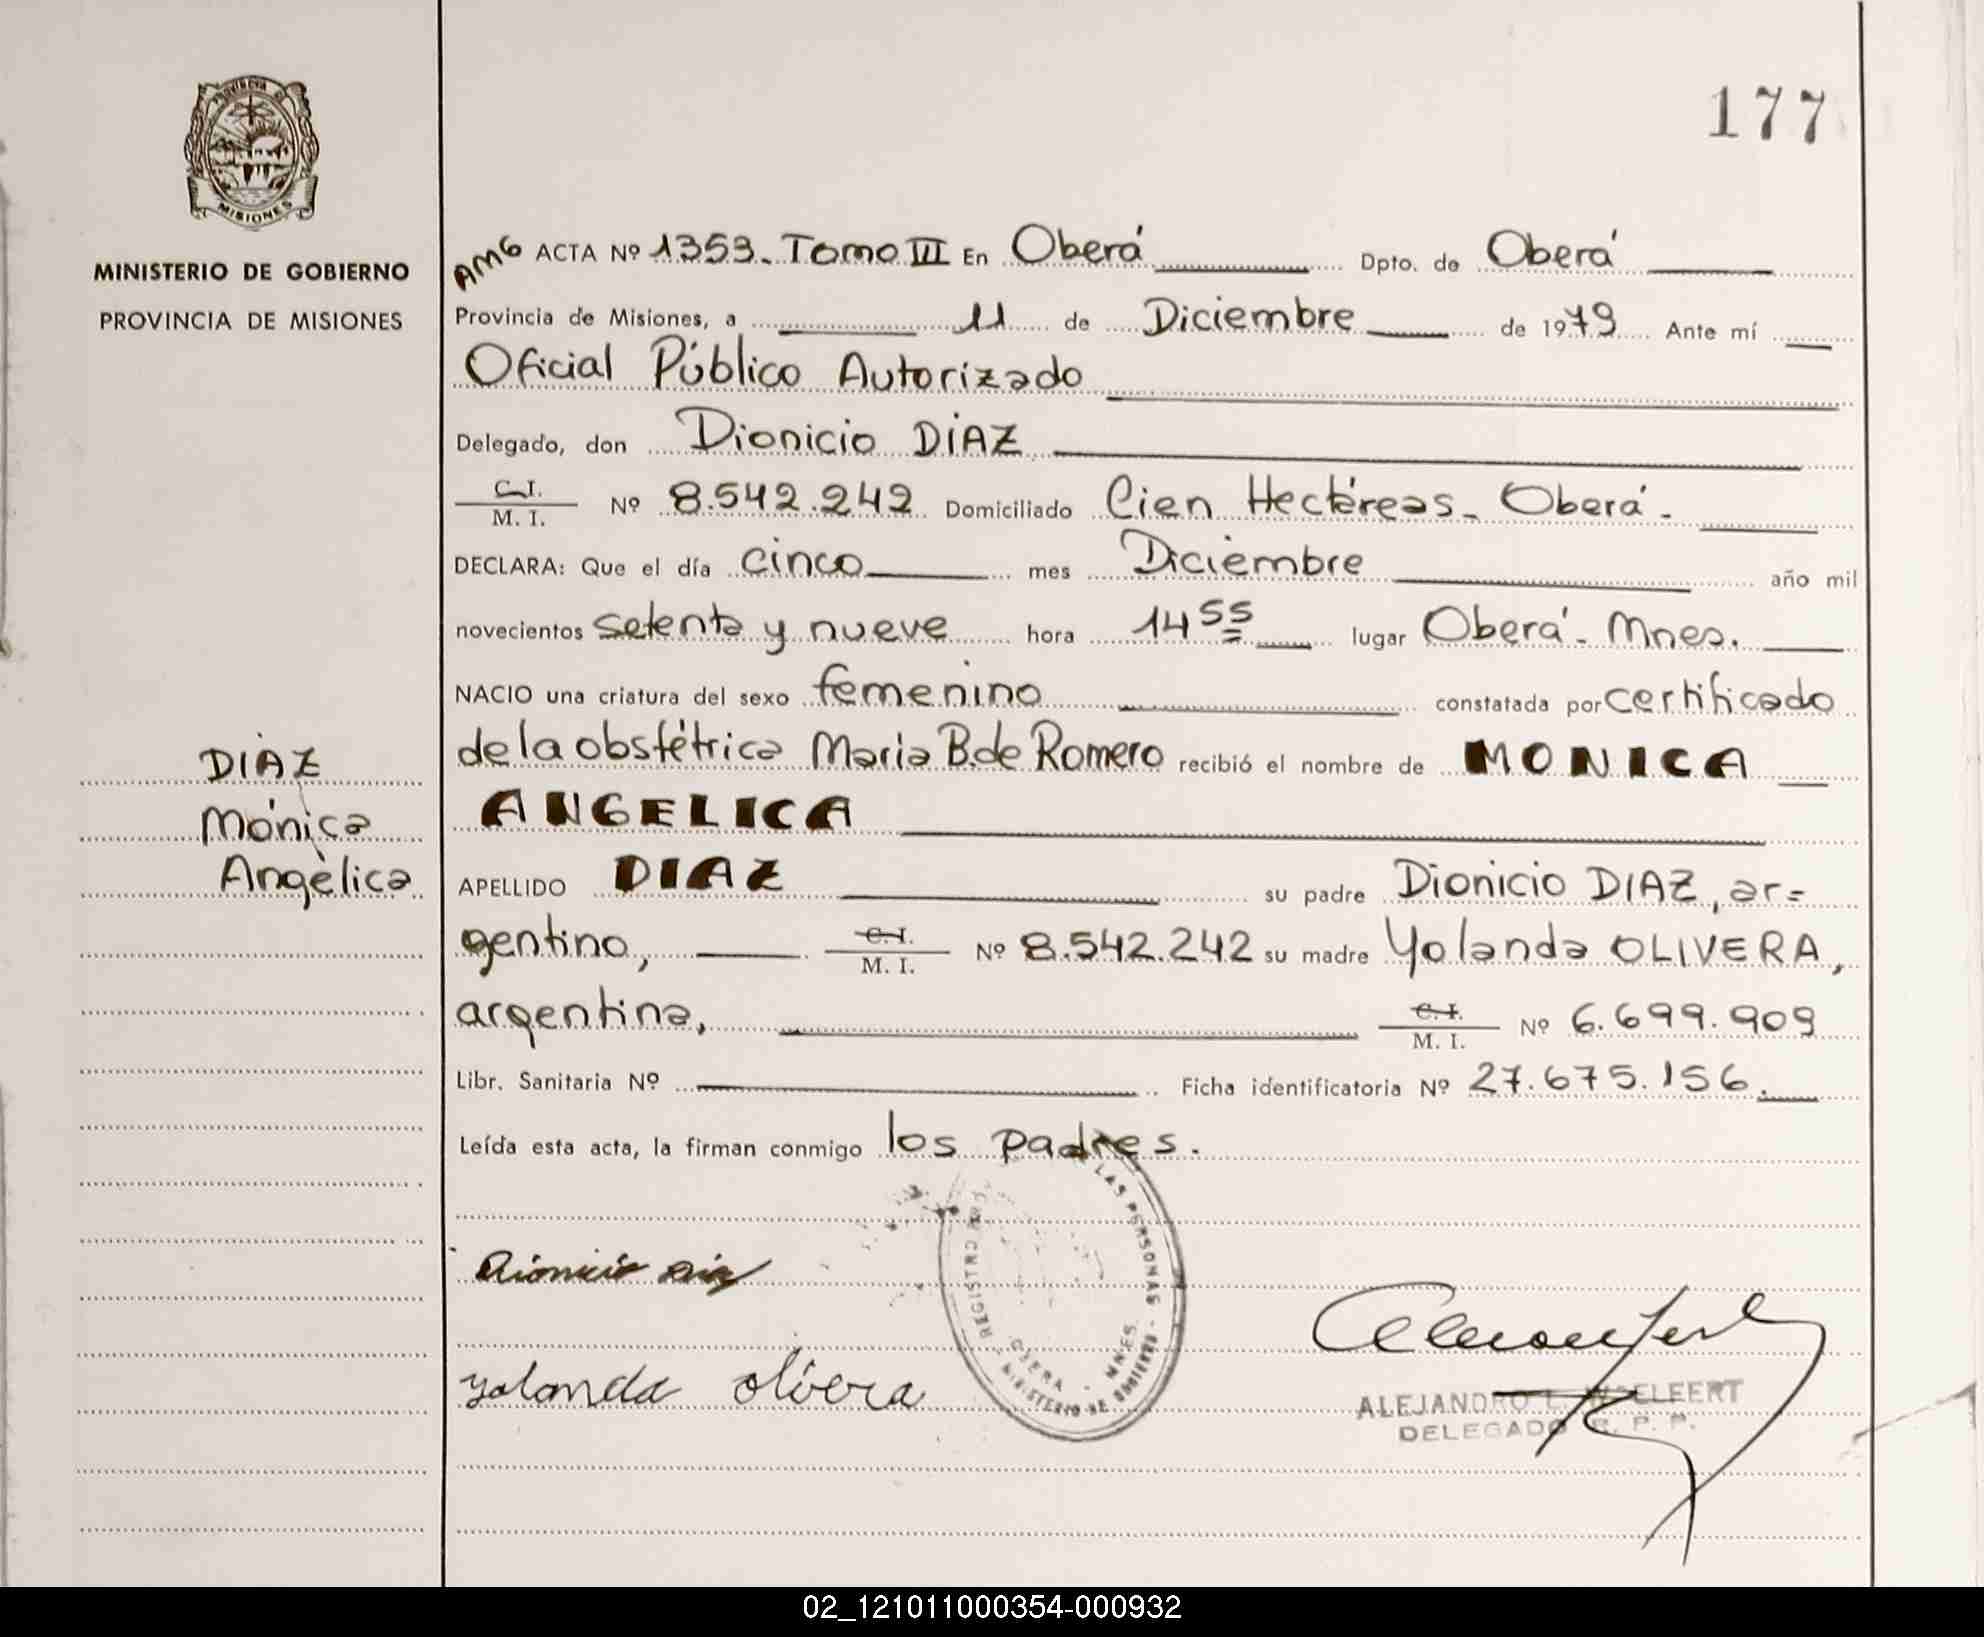 PROVINCIA DE
MISIONES
MINISTERIO DE GOBIERNO
PROVINCIA DE MISIONES
177
AMG ACTA Nº 1353. Tomo VII En Oberá Dpto. de Oberá
Provincia de Misiones, a 11 de Diciembre de 1979 Ante mí
Oficial Público Autorizado
Delegado, don Dionicio DÍAZ
C.I. / M. I. Nº 8.542.242 Domiciliado Cien Hectáreas - Oberá -
DECLARA: Que el día cinco mes Diciembre año mil
novecientos setenta y nueve hora 14 55 lugar Oberá - Mnes.
NACIO una criatura del sexo femenino constatada por certificado
de la obstétrica Maria B. de Romero recibió el nombre de MONICA
ANGELICA
DÍAZ
Mónica
Angélica
APELLIDO DIAZ su padre Dionicio DIAZ, ar=
gentino, C.I. / M. I. Nº 8.542.242 su madre Yolanda OLIVERA,
argentina, C.I. / M. I. Nº 6.699.909
Libr. Sanitaria Nº Ficha identificatoria Nº 27.675.156.
Leída esta acta, la firman conmigo los padres.
REGISTRO LAS PERSONAS
OBERA - MNES.
MINISTERIO DE GOBIERNO
Dionicio Diaz
Yolanda olivera
ALEJANDRO L. WELFERT
DELEGADO R. P. P.
02_121011000354-000932